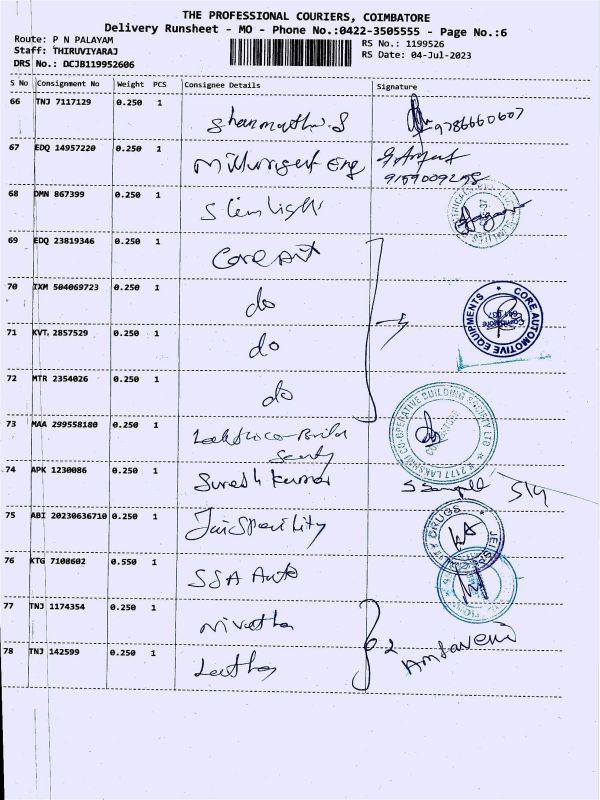 THE PROFESSIONAL COURIERS, COIMBATORE
Delivery Runsheet - MO - Phone No.:0422-3505555 - Page No.:6
Route: P N PALAYAM
RS No.: 1199526
Staff: THIRUVIYARAJ
RS Date: 04-Jul-2023
DRS No.: DCJB119952606
S No Consignment No Weight PCS Consignee Details Signature
66 TNJ 7117129 0.250 1
9786660607
67 EDQ 14957220 0.250 1
9159009298
68 DMN 867399 0.250 1
69 EDQ 23819346 0.250 1 Core Aut
70 IXM 504069723 0.250 1 do
CORE AUTOMOTIVE EQUIPMENTS
Coimbatore
71 KVT. 2857529 0.250 1 do
72 MTR 2354026 0.250 1 do
CO-OPERATIVE BUILDING SOCIETY LTD
73 MAA 299558180 0.250 1
74 APK 1230086 0.250 1 Suresh kumar
75 ABI 20230636710 0.250 1
DRUGS
76 KTG 7108602 0.550 1 SSA Auto
77 TNJ 1174354 0.250 1 Nivetha
78 TNJ 142599 0.250 1 Leetha